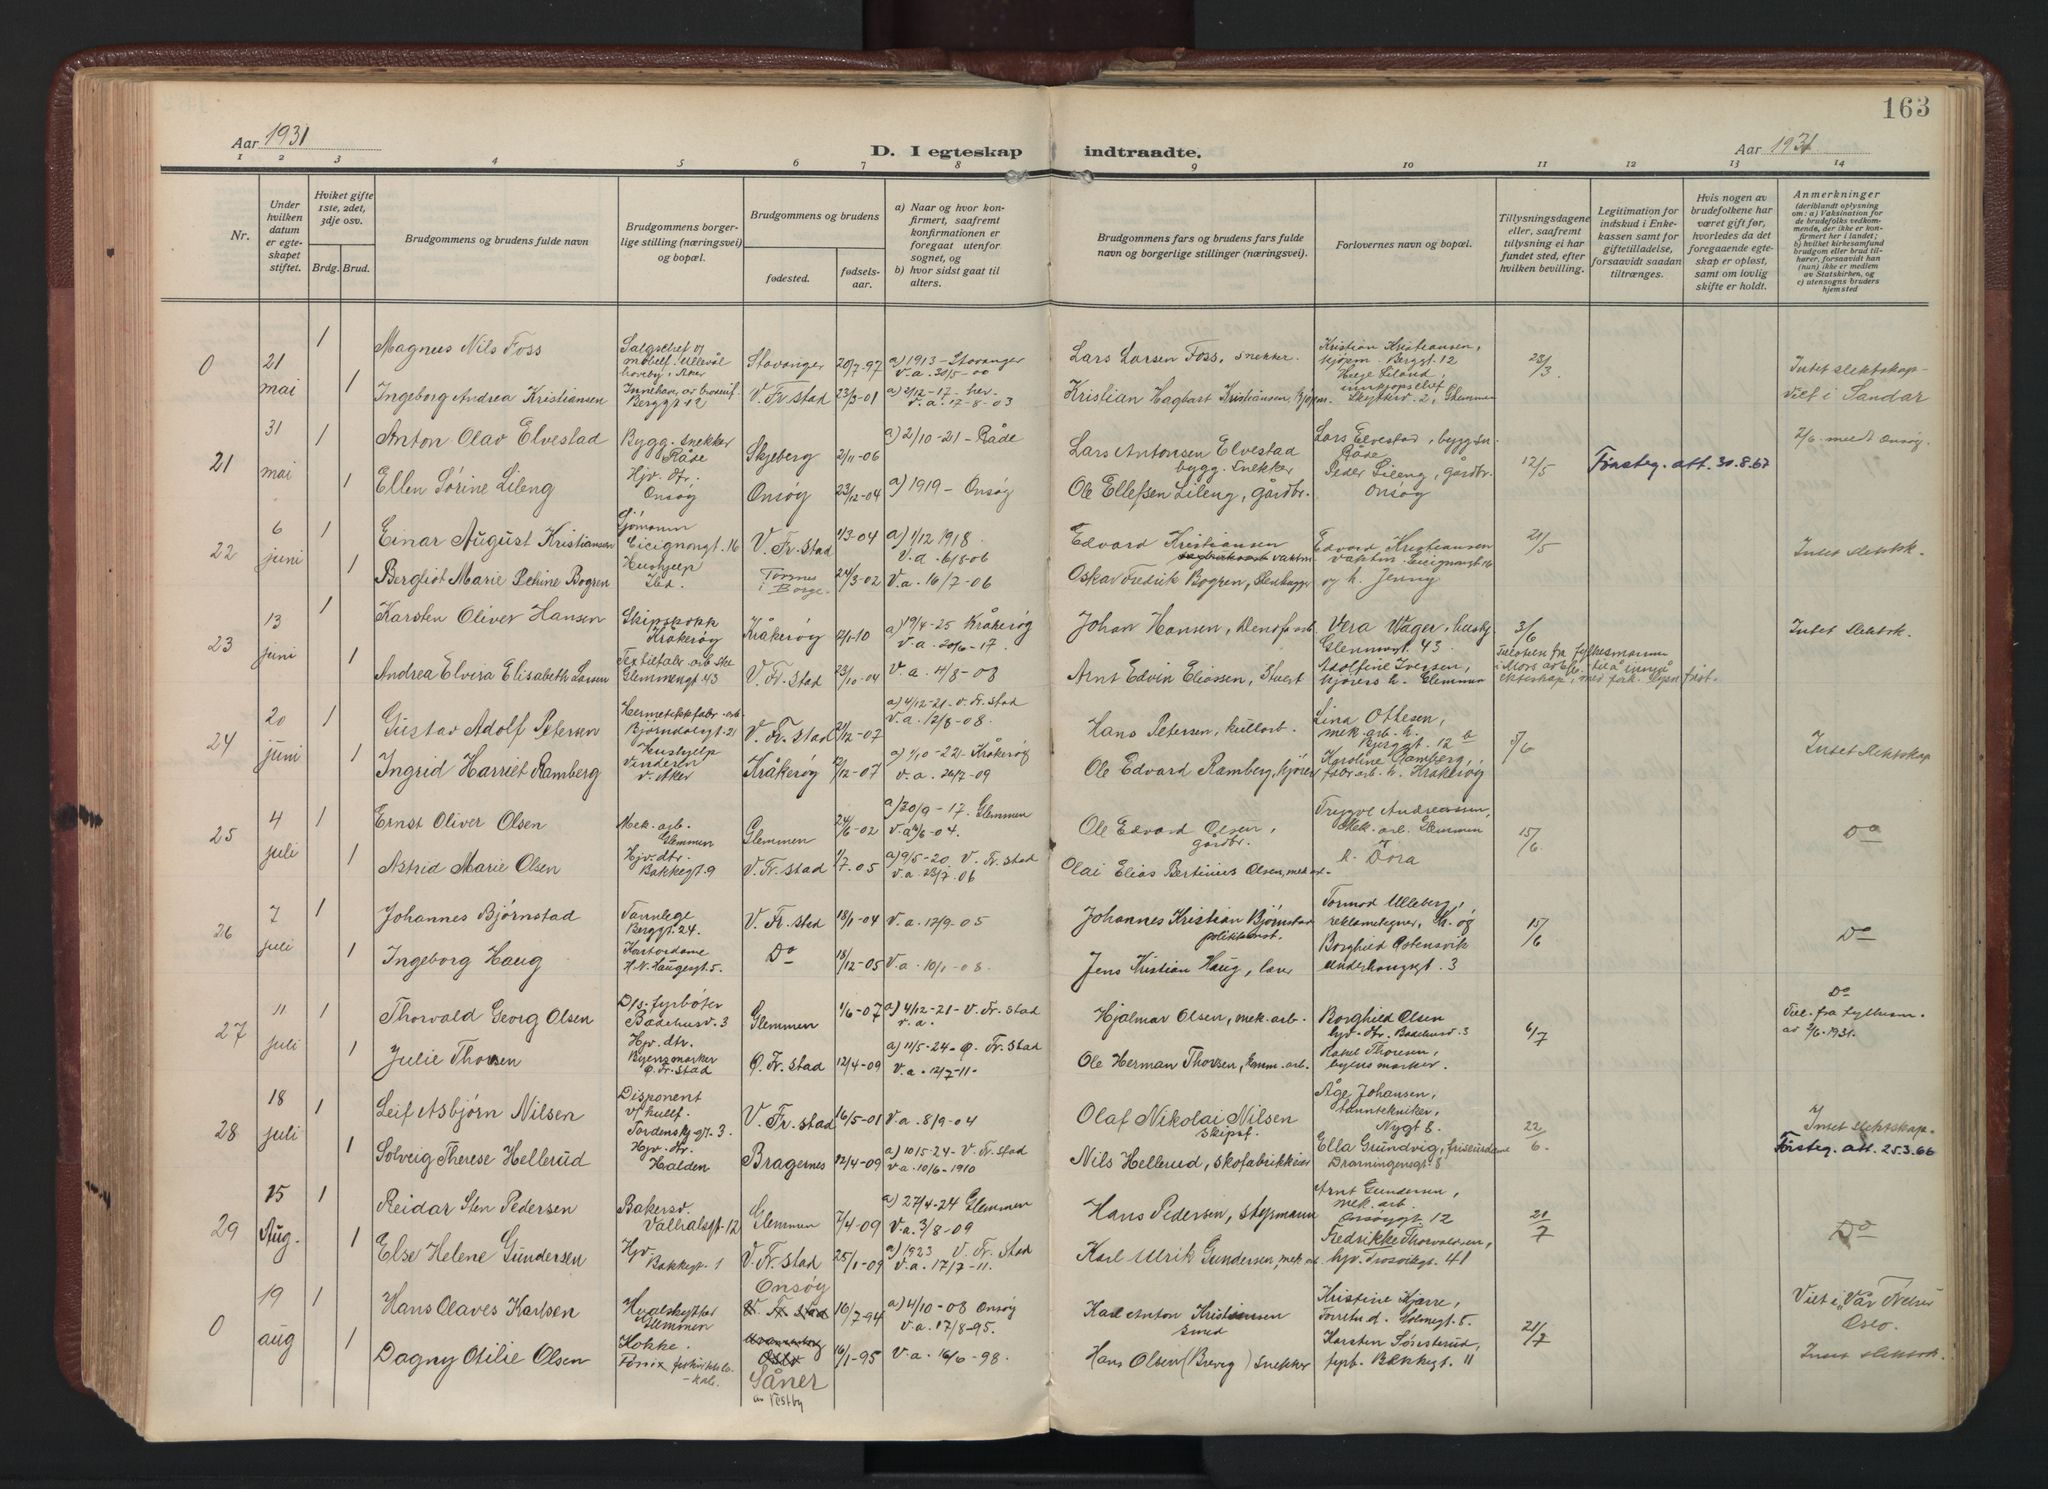 163
Aar 1931
D. I egteskap indtraadte.
Aar 1931
1 2 3 4 5 6 7 8 9 10 11 12 13 14
Nr.
Under hvilken datum er egteskapet stiftet.
Hviket gifte 1ste, 2det, 3dje osv.
Brdg. Brud.
Brudgommens og brudens fulde navn
Brudgommens borgerlige stilling (næringsvei) og bopæl.
Brudgommens og brudens
fødested.
fødselsaar.
a) Naar og hvor konfirmert, saafremt konfirmationen er foregaat utenfor sognet, og
b) hvor sidst gaat til alters.
Brudgommens fars og brudens fars fulde navn og borgerlige stillinger (næringsvei).
Forlovernes navn og bopæl.
Tillysningsdagene eller, saafremt tillysning ei har fundet sted, efter hvilken bevilling.
Legitimation for indskud i Enkekassen samt for giftetilladelse, forsaavidt saadan tiltrænges.
Hvis nogen av brudefolkene har været gift før, hvorledes da det foregaaende egteskap er opløst, samt om lovlig skifte er holdt.
Anmerkninger
(deriblandt oplysning om: a) Vaksination for de brudefolks vedkommende, der ikke er konfirmert her i landet; b) hvilket kirkesamfund brudgom eller brud tilhører, forsaavidt han (hun) ikke er medlem av Statskirken, og c) utensogns bruders hjemsted
0 21 mai
1 Magnus Nils Foss
Stavanger 20/7-97 a) 1913 - Stavanger
v.a. 30/5-00
Lars Larsen Foss, snekker.
Kristian Kristiansen,
Berggt. 12
23/3
Intet slektskap
1 Ingeborg Andrea Kristiansen
Berggt 12
V. Fr.stad 23/3-01 a) 2/12-17- her
v.a. 17-8-03
Kristian Hagbart Kristiansen,
Viet i Sandar
21 31 mai
1 Anton Olav Elvestad
Bygg. snekker
Råde
Skjeberg 2/11-06 a) 2/10-21 - Råde
Lars Antonsen Elvestad
bygg. snekker
Lars Elvestad, bygg.sn.
Råde
12/5
Førsteg. att. 30.8.67
2/6. medt Onsøy.
1 Ellen Sørine Lileng
Hjv. dtr.
Onsøy
Onsøy 23/12-04 a) 1919 - Onsøy
Ole Ellefsen Lileng, gårdbr.
Peder Lileng, gårdbr.
Onsøy
22 6 juni
1 Einar August Kristiansen
Sjømann
Cicignongt. 16
V. Fr.stad 1/3-04 a) 1/12 1918.
v.a. 6/8-06
Edvard Kristiansen
vaktm
Edvard Kristiansen
vaktm. Cicignongt 16
21/5
Intet slektsk.
1 Bergliot Marie Petrine Bogren
Hushjelp
Ibd.
Torsnes
i Borge.
24/3-02 v.a. 16/7-06
Oskar Fredrik Bogren, Stenhugger
og h. Jenny
23 13 juni
1 Karsten Oliver Hansen
Skipskokk
Kråkerøy
Kråkerøy 12/1-10 a) 19/4-25 Kråkerøy
v.a. 20/6-17
Johan Hansen,
Vera Wager, hushj
Glemmengt. 43.
3/6
Intet slektsk.
1 Andrea Elvira Elisabeth Larsen
Textilfabr. arb.ske
Glemmengt 43
V. Fr.stad 23/10-04 v.a. 4/8-08
Arnt Edvin Eliassen, Stuert
Adolfine Iversen,
kjørers h. Glemmen
24 20 juni
1 Gustav Adolf Petersen
Hermetikkfabr. arb.
Bjørndalsgt 21
V. Fr.stad 21/12-07 a) 4/12-21- V. Fr.stad
v.a. 12/8-08.
Hans Petersen, kullarb.
Lina Ottesen,
mek. arb. h.
Bjerggt. 12 a
5/6
Intet slektskap
1 Ingrid Harriet Ramberg
Hushjelp
Vinderen
v. Aker
Kråkerøy 12/12-07 a) 1/10-22 Kråkerøy
v.a. 24/2-09
Ole Edvard Ramberg, kjører
Karoline Ramberg,
fabr. arb. h. Kråkerøy
25 4 juli
1 Ernst Oliver Olsen
Mek. arb.
Glemmen
Glemmen 24/6-02 a) 30/9-17. Glemmen
Ole Edvard Olsen,
gårdbr.
Trygve Andreassen,
Mek. arb. Glemmen
15/6
Do
1 Astrid Marie Olsen
Hjv. dtr.
Bakkegt. 9
V. Fr.stad 1/7-05 a) 9/5-20. V. Fr.stad
v.a. 23/7-06
Olai Elias Bertinius Olsen, mek. arb.
26 7 juli
1 Johannes Bjørnstad
Tannlege
Berggt. 24.
V. Fr.stad 18/1-04 v.a. 12/9-05
Johannes Kristian Bjørnstad
politikonst.
Tormod Ulleberg,
reklametegner,
15/6
Do
1 Ingeborg Haug
Kontordame
H.N. Haugesgt. 5.
Do 18/12-05 v.a. 10/1-08.
Jens Kristian Haug, lærer
Borghild Østensvik
27 11 juli
1 Thorvald Georg Olsen
D/s. fyrbøter
Badehusv. 3
Glemmen 1/6-07 a) 4/12-21- V. Fr.stad
v.a.
Hjalmar Olsen, mek. arb.
Borghild Olsen
hjv. dtr. Badehusv. 3
6/7
Do
av 2/6-1931.
1 Julie Thorsen
Hjv. dtr.
Byens marker
Ø. Fr.stad
Ø. Fr.stad 12/4-09 a) 11/5-24- Ø. Fr.stad
v.a. 12/7-11-
Ole Herman Thorsen, komm. arb.
Rakel Thoresen,
byens marker.
28 18 juli
1 Leif Asbjørn Nilsen
Disponent
v/ kullf.
Tordenskj. gt. 3.
V. Fr.stad 16/5-01 v.a. 8/9-04
Olaf Nikolai Nilsen
skipsf.
Åge Johansen,
tanntekniker,
Nygt 8.
22/6
Intet slektskap.
Førsteg. att. 25.3.66
1 Solveig Therese Hellerud
Hjv. dtr.
Halden
Bragernes 12/4-09 a) 10/5-24- V. Fr.stad
v.a. 10/6-1910
Nils Hellerud, skofabrikkeier
Ella Grundvig, friserdame
Dronningensgt 8
29 15 Aug.
1 Reidar Sten Pedersen
Bakersv.
Valhalsgt. 12
Glemmen 7/4-09 a) 27/4-24 Glemmen
v.a. 3/8-09
Hans Pedersen, støpmann
Arnt Gundersen,
mek. arb.
Onsøygt. 12
21/7
Do
1 Else Helene Gundersen
Hjv.
Bakkegt. 1
V. Fr.stad 25/1-09 a) 1923 V. Fr.stad
v.a. 17/7-11.
Karl Ulrik Gundersen, mek. arb.
Fredrikke Thorvaldsen,
hjv. Trosvikgt. 41
0 19 aug
1 Hans Olaves Karlsen
Hvalskytter
Glemmen
Onsøy
V. Fr.stad
16/7-94 a) 4/10-08 Onsøy
v.a. 17/8-95.
Karl Anton Kristiansen
smed
Kristine Kjærre,
Holmegt. 5.
21/7
Viet i "Vår Frelser
Oslo.
1 Dagny Otilie Olsen
Kokke.
Oslo
Såner
av Vestby
16/1-95 v.a. 16/6-98.
Hans Olsen (Brevig) snekker
Karsten Sønsterud,
fyrb. Bakkegt. 11
Intet slektsk.